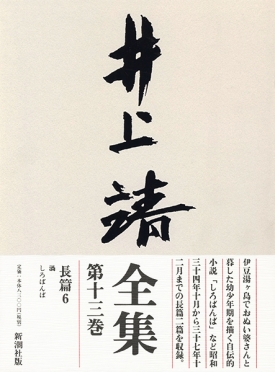 井上靖
全集
第十三巻
伊豆湯ヶ島でおぬい婆さんと
暮した幼少年期を描く自伝的
小説「しろばんば」など昭和
三十四年十月から三十七年十
二月までの長篇二篇を収録。
長篇6
渦
しろばんば
新潮社版